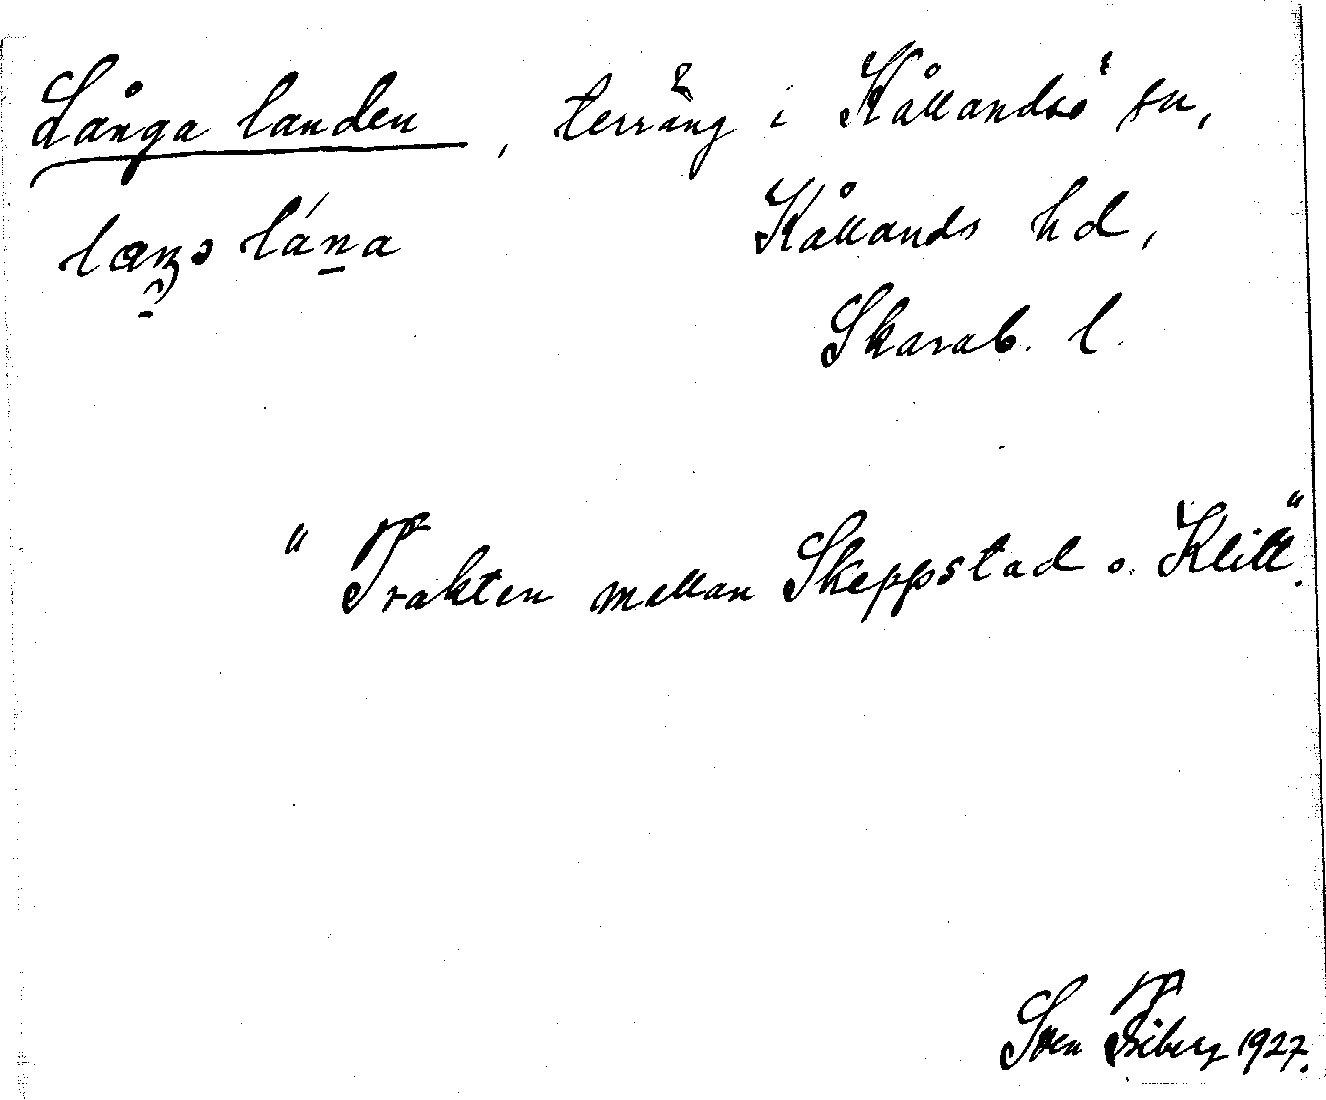 Långa landen, terräng i Kållandsö sn,
lána Kållands hd,
Skarab. l.
"Trakten mellan Skeppstad o. Klitt".
Sven 1927.